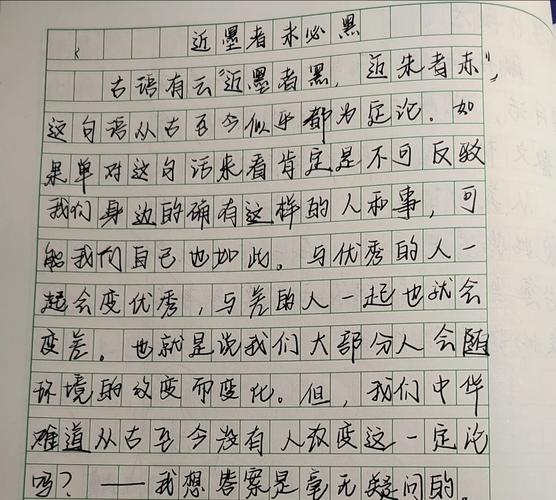 近墨者未必黑
古语有云"近墨者黑,近朱者赤",
这句语从古至今似乎都为定论.如
果单对这句话来看肯定是不可反驳
我们身边的确有这样的人和事,可
能我们自己也如此。与优秀的人一
起会变优秀,与差的人一起也就会
变差。也就是说我们大部分人会随
环境的改变而变化。但,我们中华
难道从古至今没有人改变这一定论
吗?——我想答案是毫无疑问的。